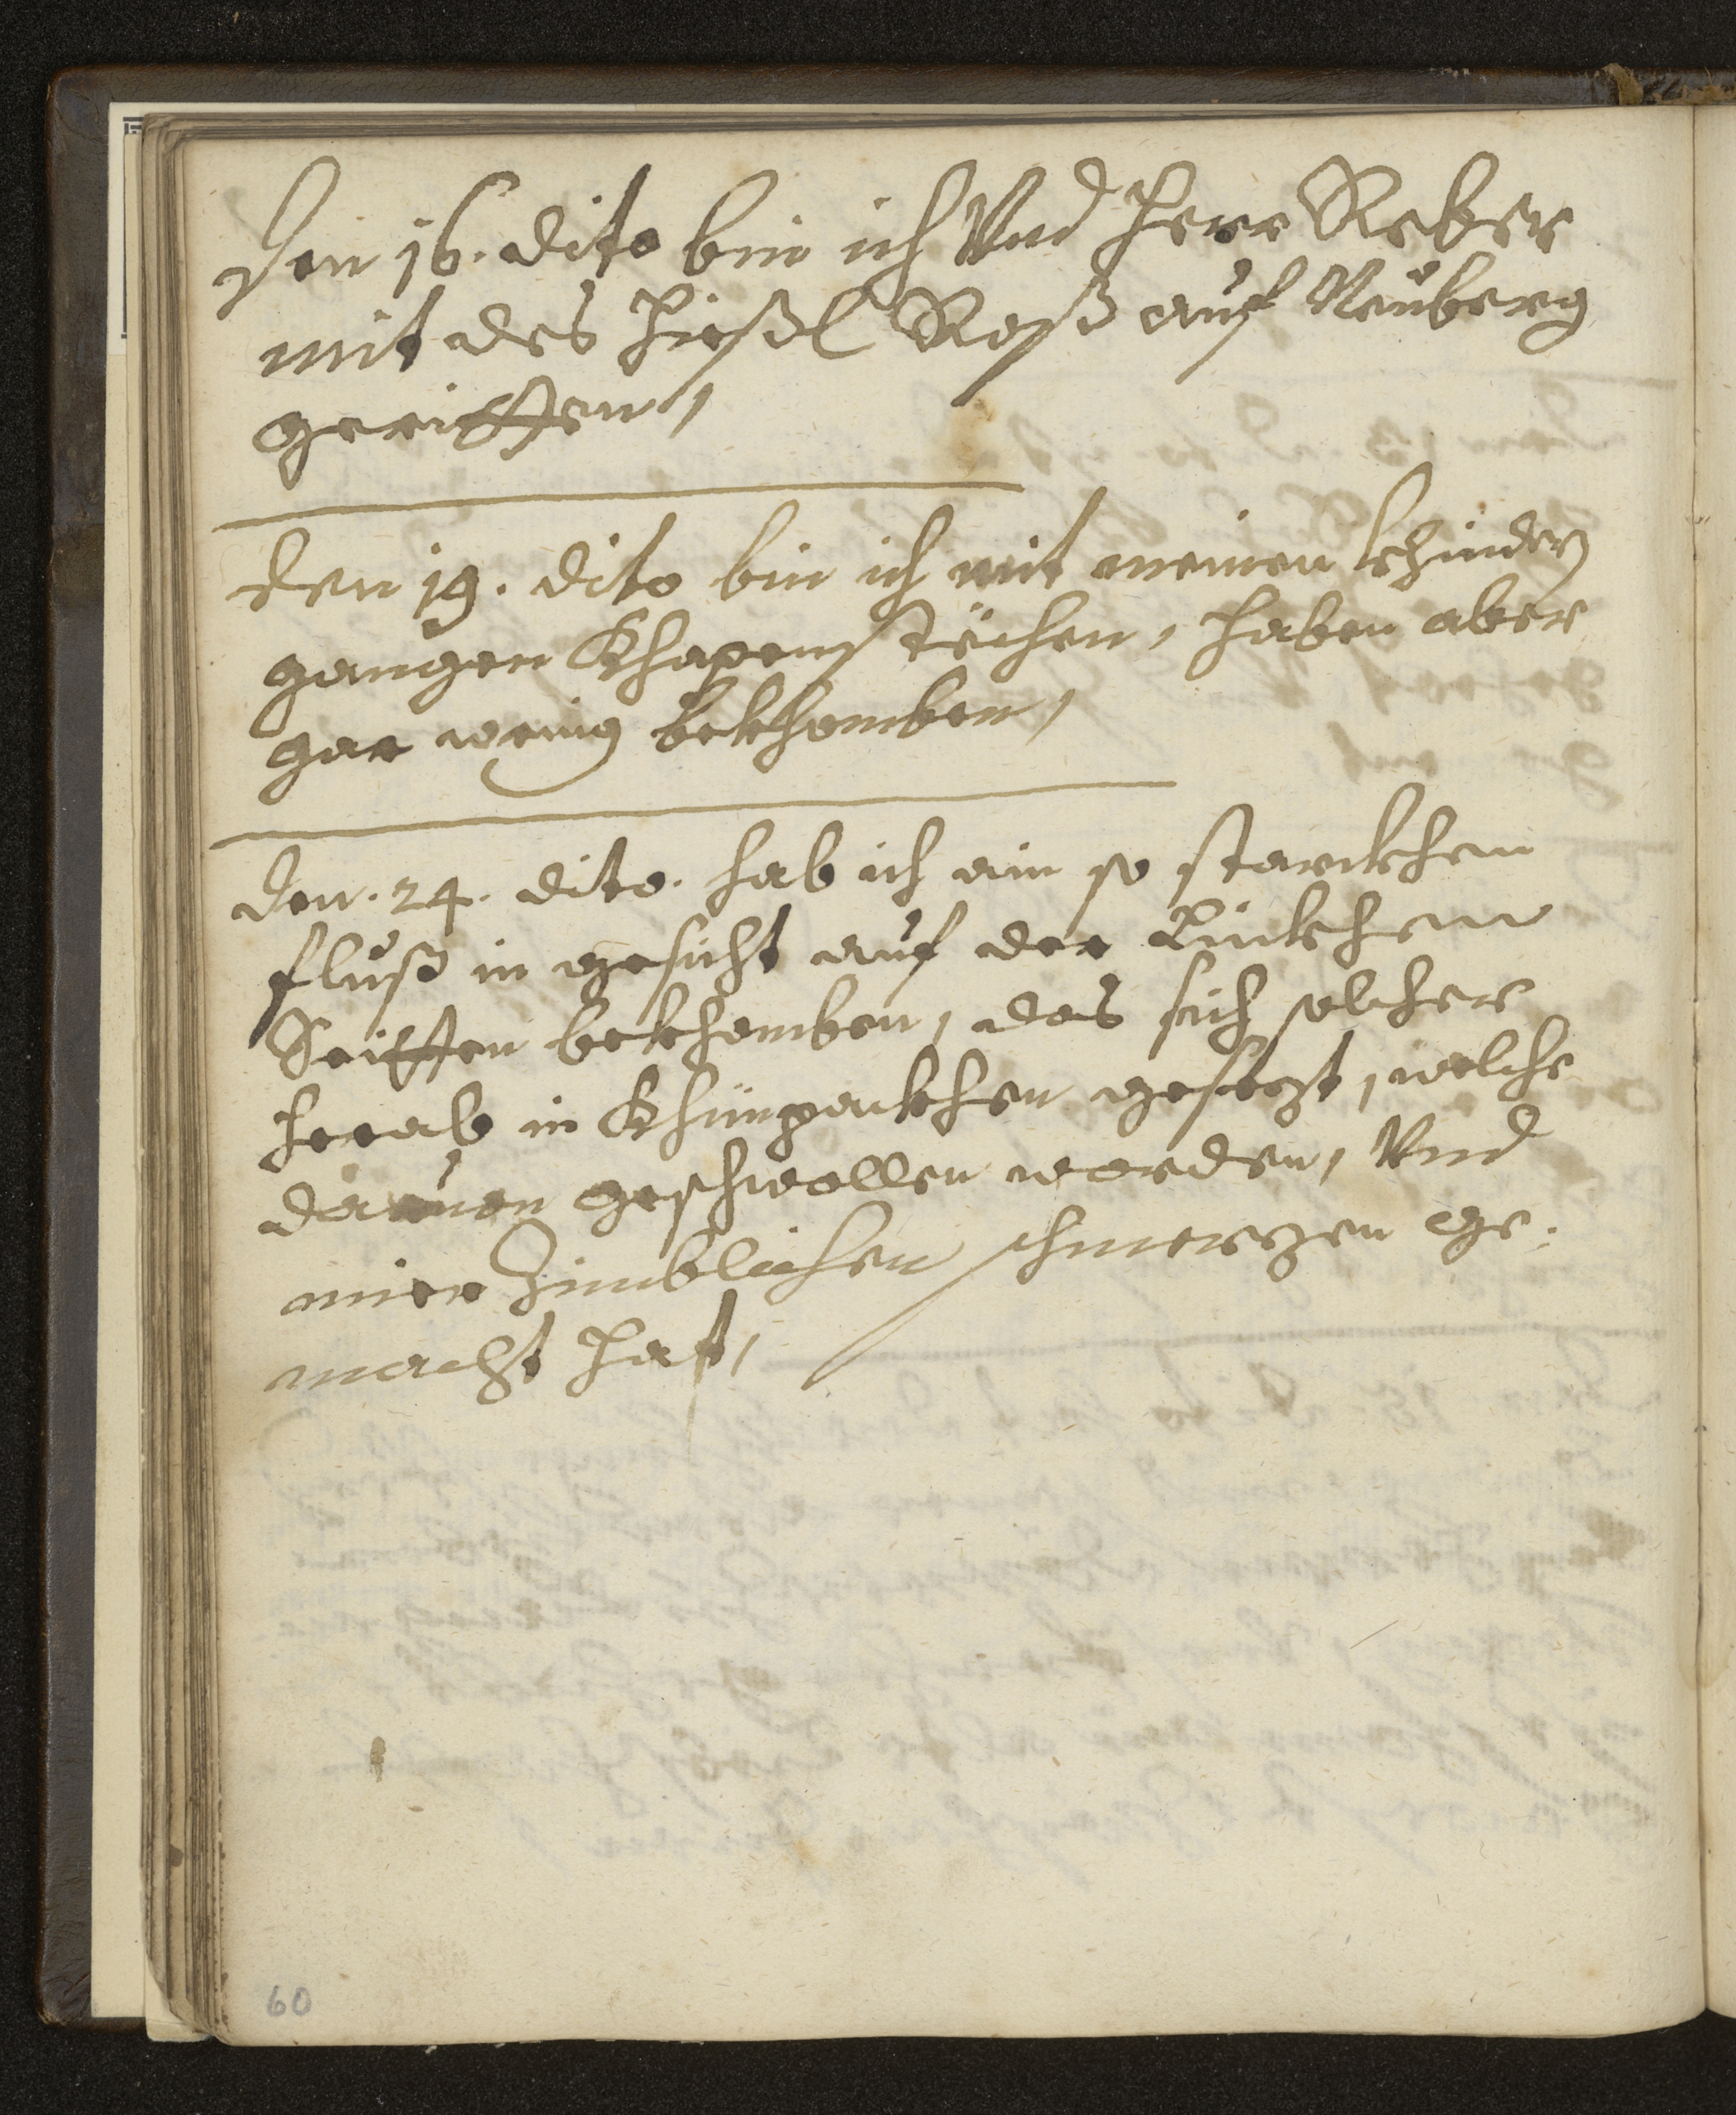 Den 16. dito bin ich Vnd Herr Reber
mit des Hießl Roß auf Neuberg
geritten,
Den 19. dito bin ich mit meinen khindern
gangen Khapenstechen, haben aber
gar wenig bekhomben,
Den. 24. dito. hab ich ain so starckhen
fluß in gesicht auf der Linckhen
Seitten bekhomben, das sich solcher
herab in Khünpackhen gesezt, welche
dauon geschwollen worden, Vnd
mier Zimblichen schmerzen ge:
macht hat,
60